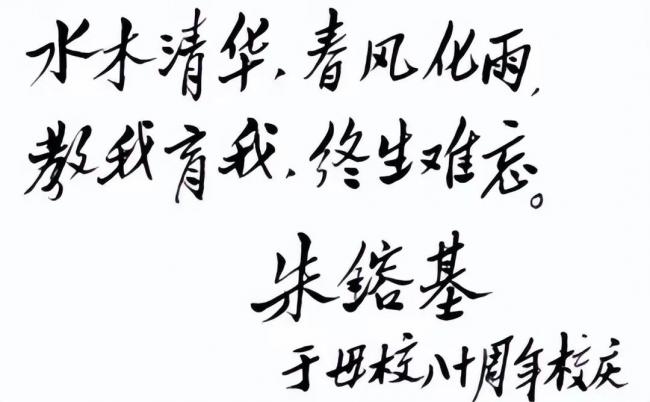 水木清华，春风化雨，
教我育我，终生难忘。
朱镕基
于母校八十周年校庆